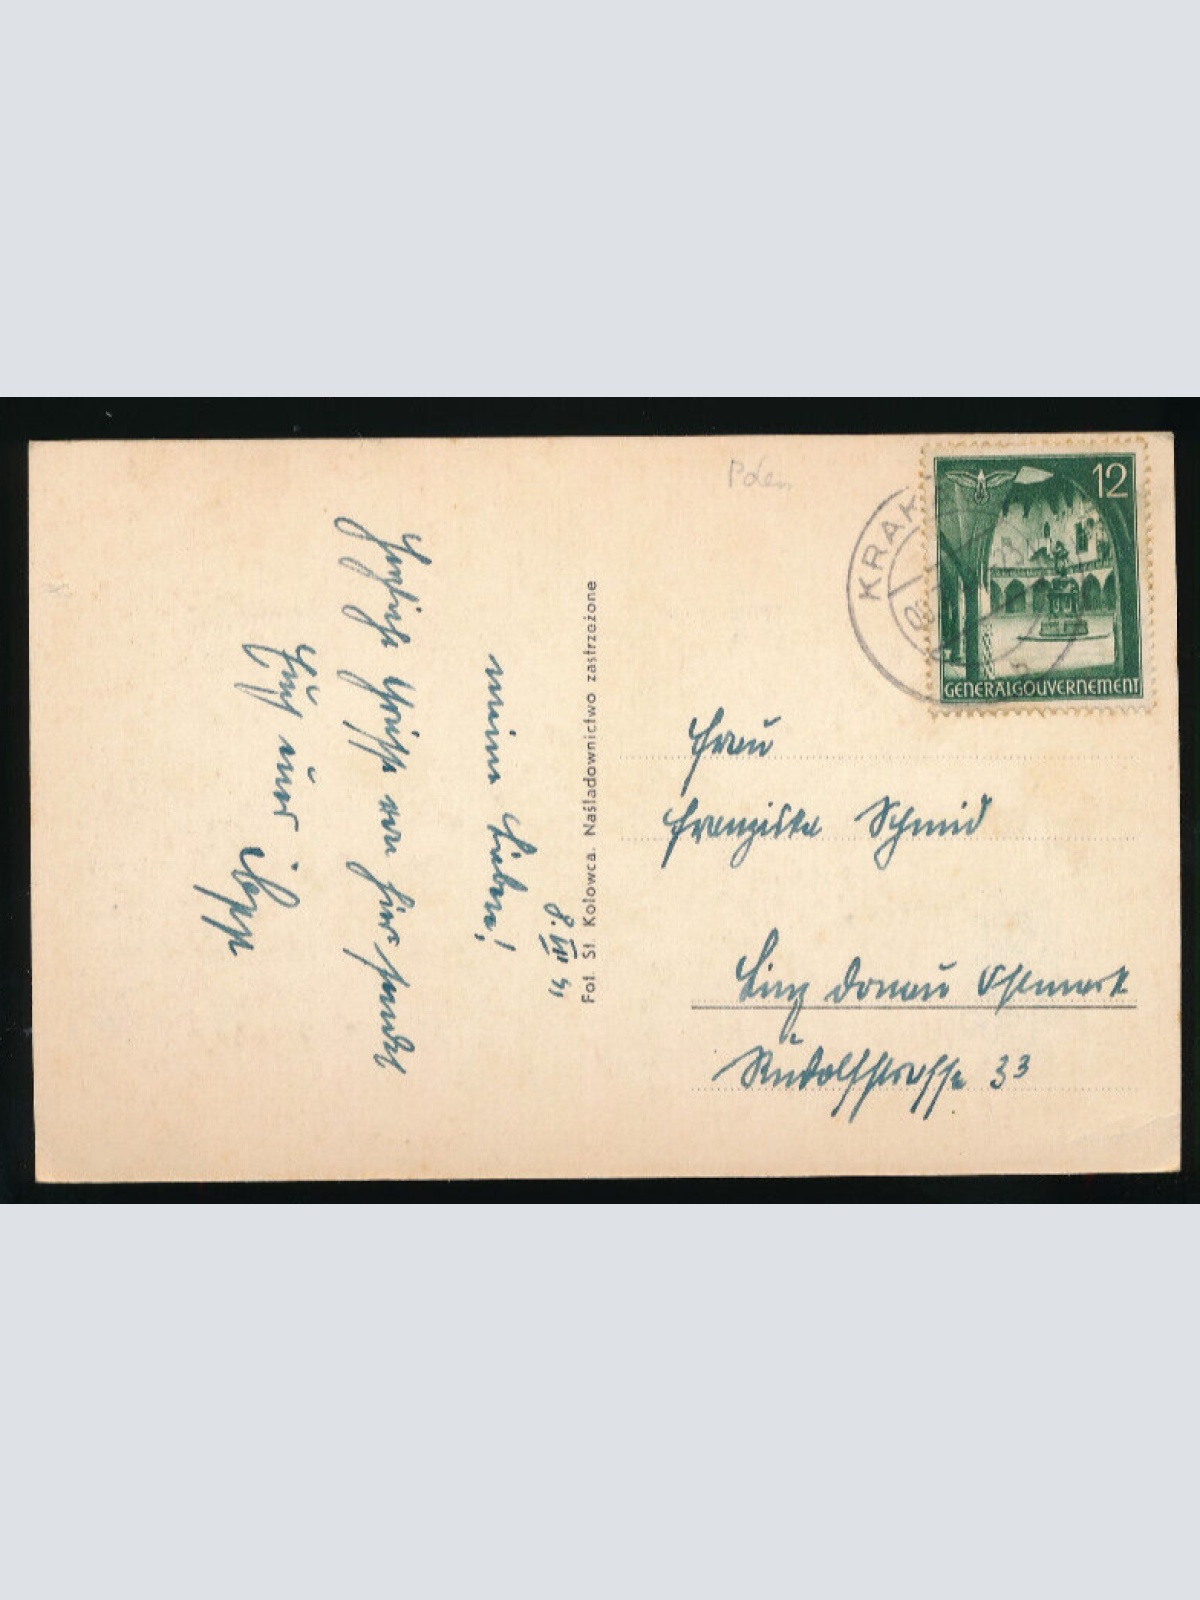 Polen
12
KRAK
GENERALGOUVERNEMENT
8. VIII 41
meine Lieben!
Herzliche Grüsse von hier sendet
Euch euer
Fot. St. Kolowca. Naśladownictwo zastrzeżone
Frau
Franziska Schmid
Linz Donau Ostmark
Rudolfstrasse 33